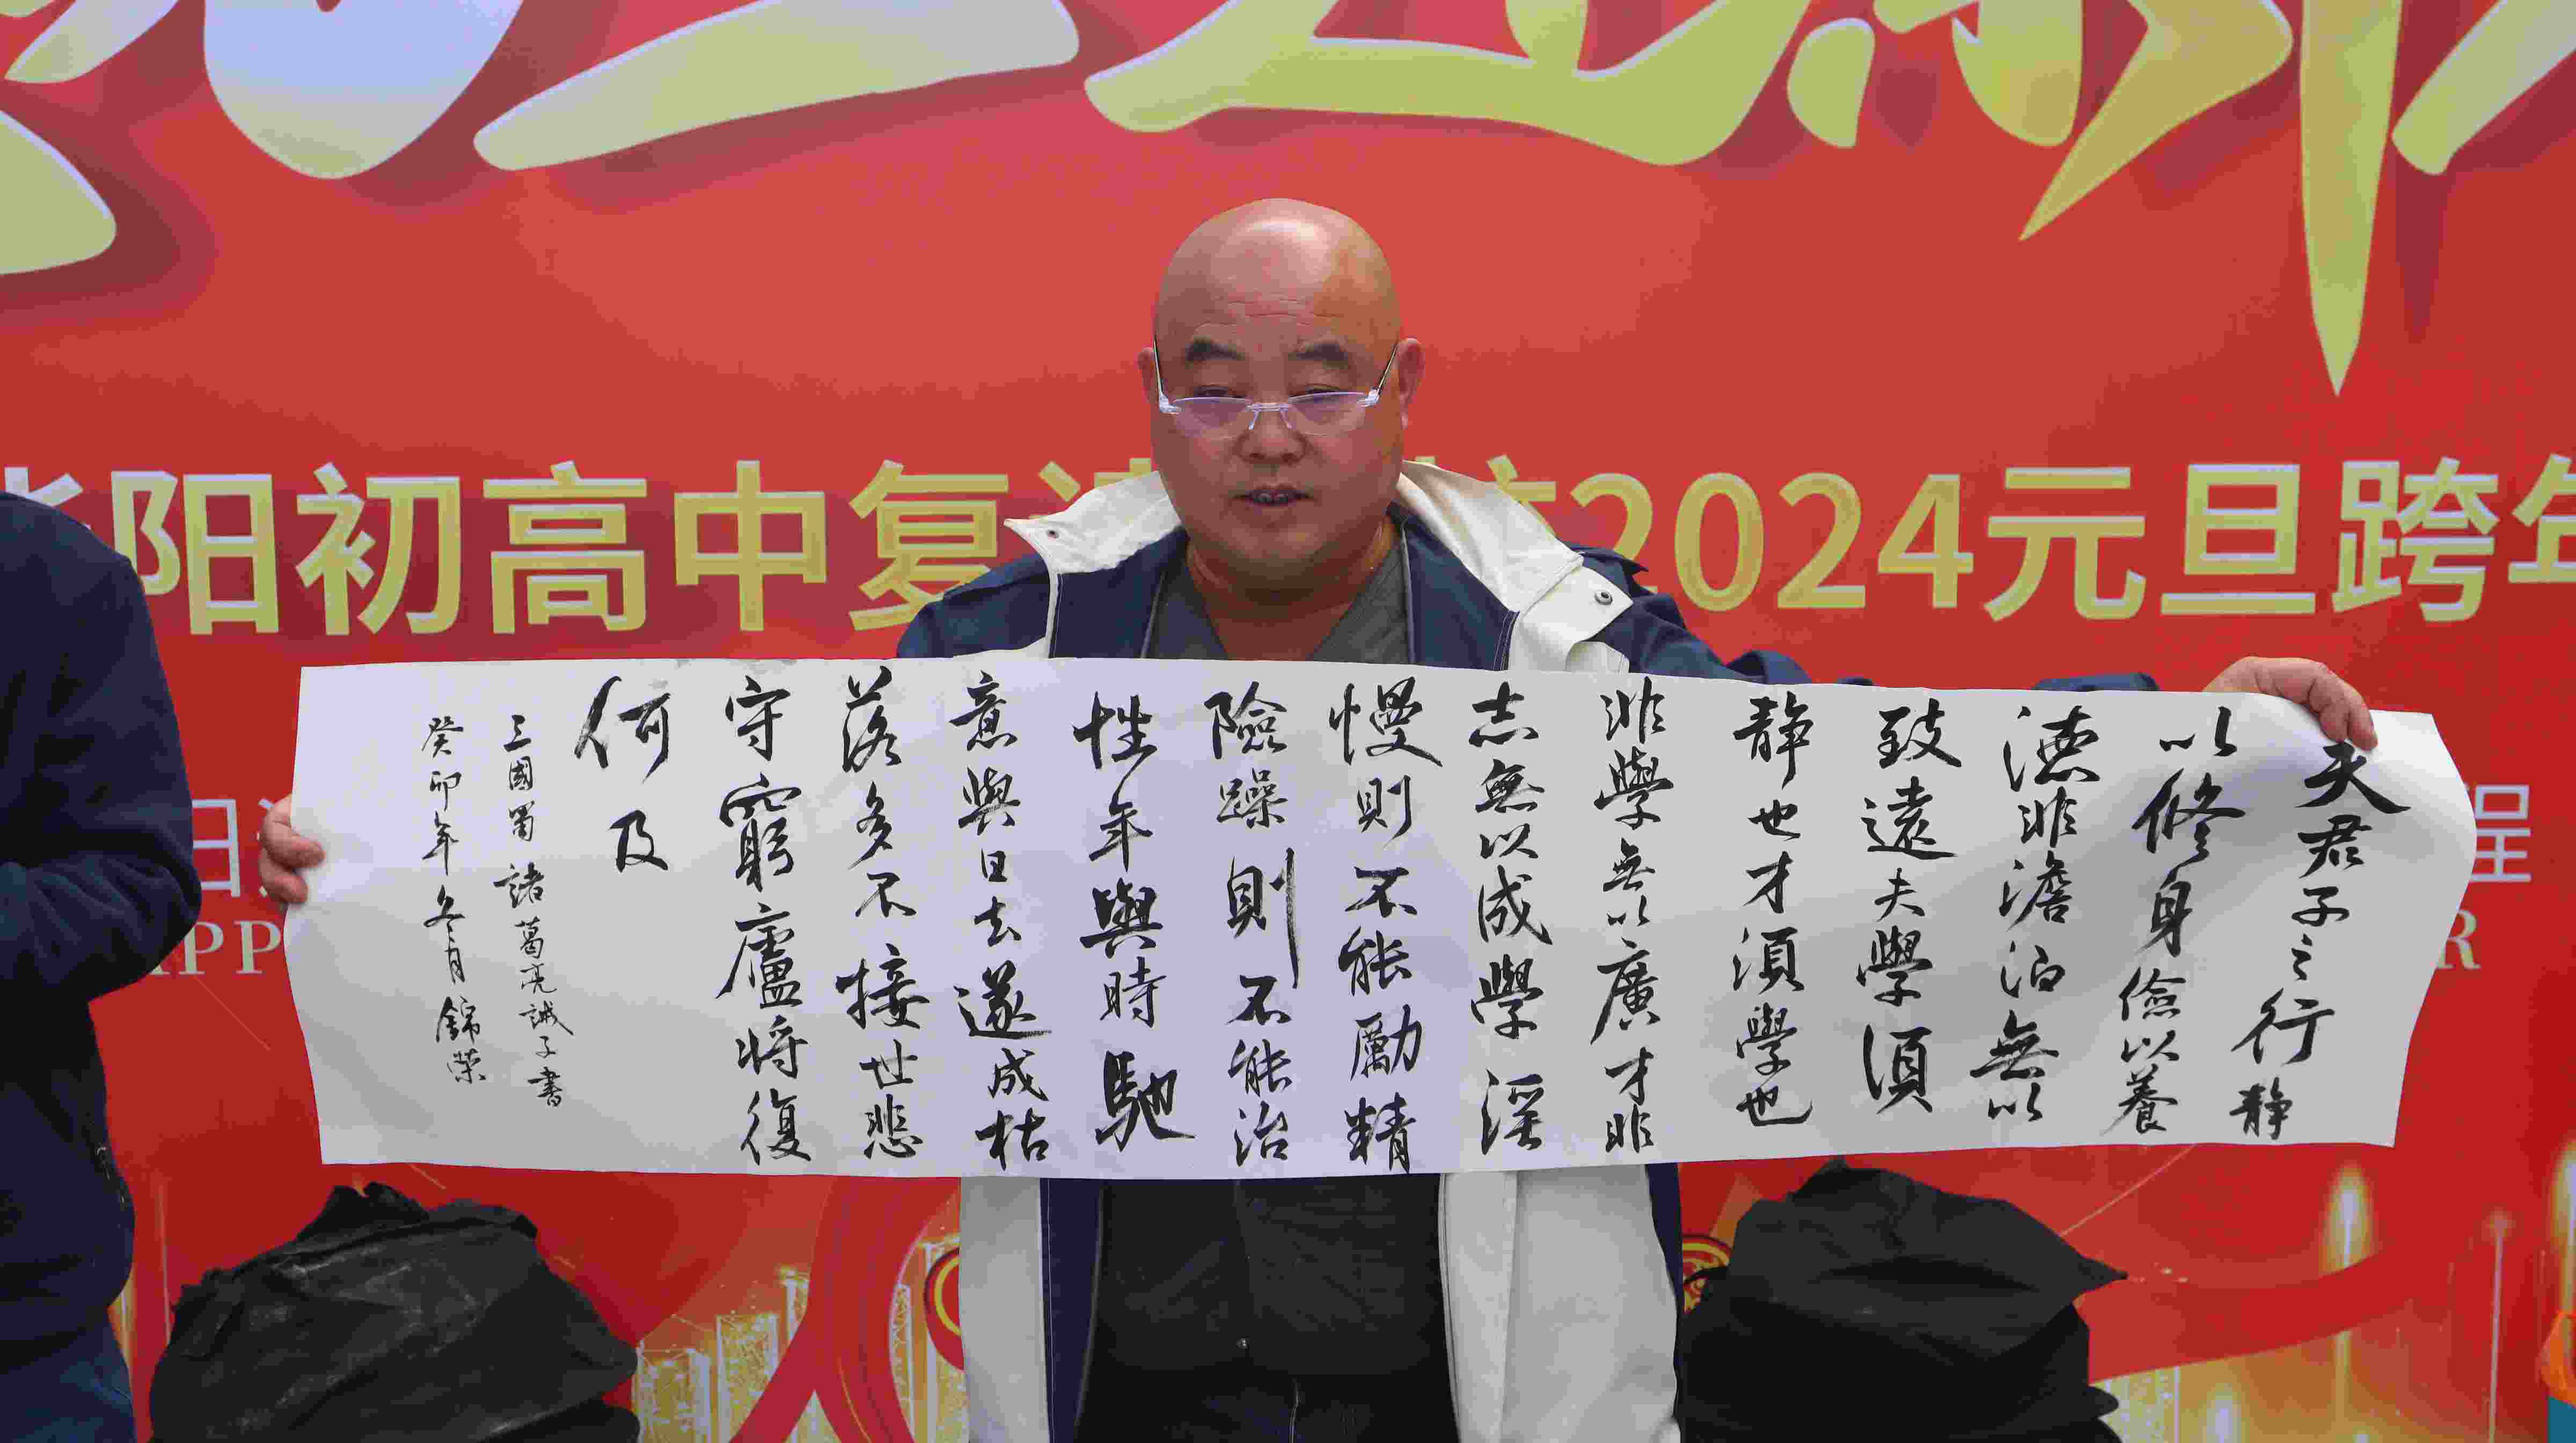 阳初高中复
2024元旦跨年
夫君子之行静
以修身儉以養
德非澹泊無以
致遠夫學須
静也才須學也
非學無以廣才非
志無以成學淫
慢則不能勵精
險躁則不能治
性年與時馳
意與日去遂成枯
落多不接世悲
守窮廬將復
何及
三國蜀諸葛亮誡子書
癸卯年冬月錦榮
程
R